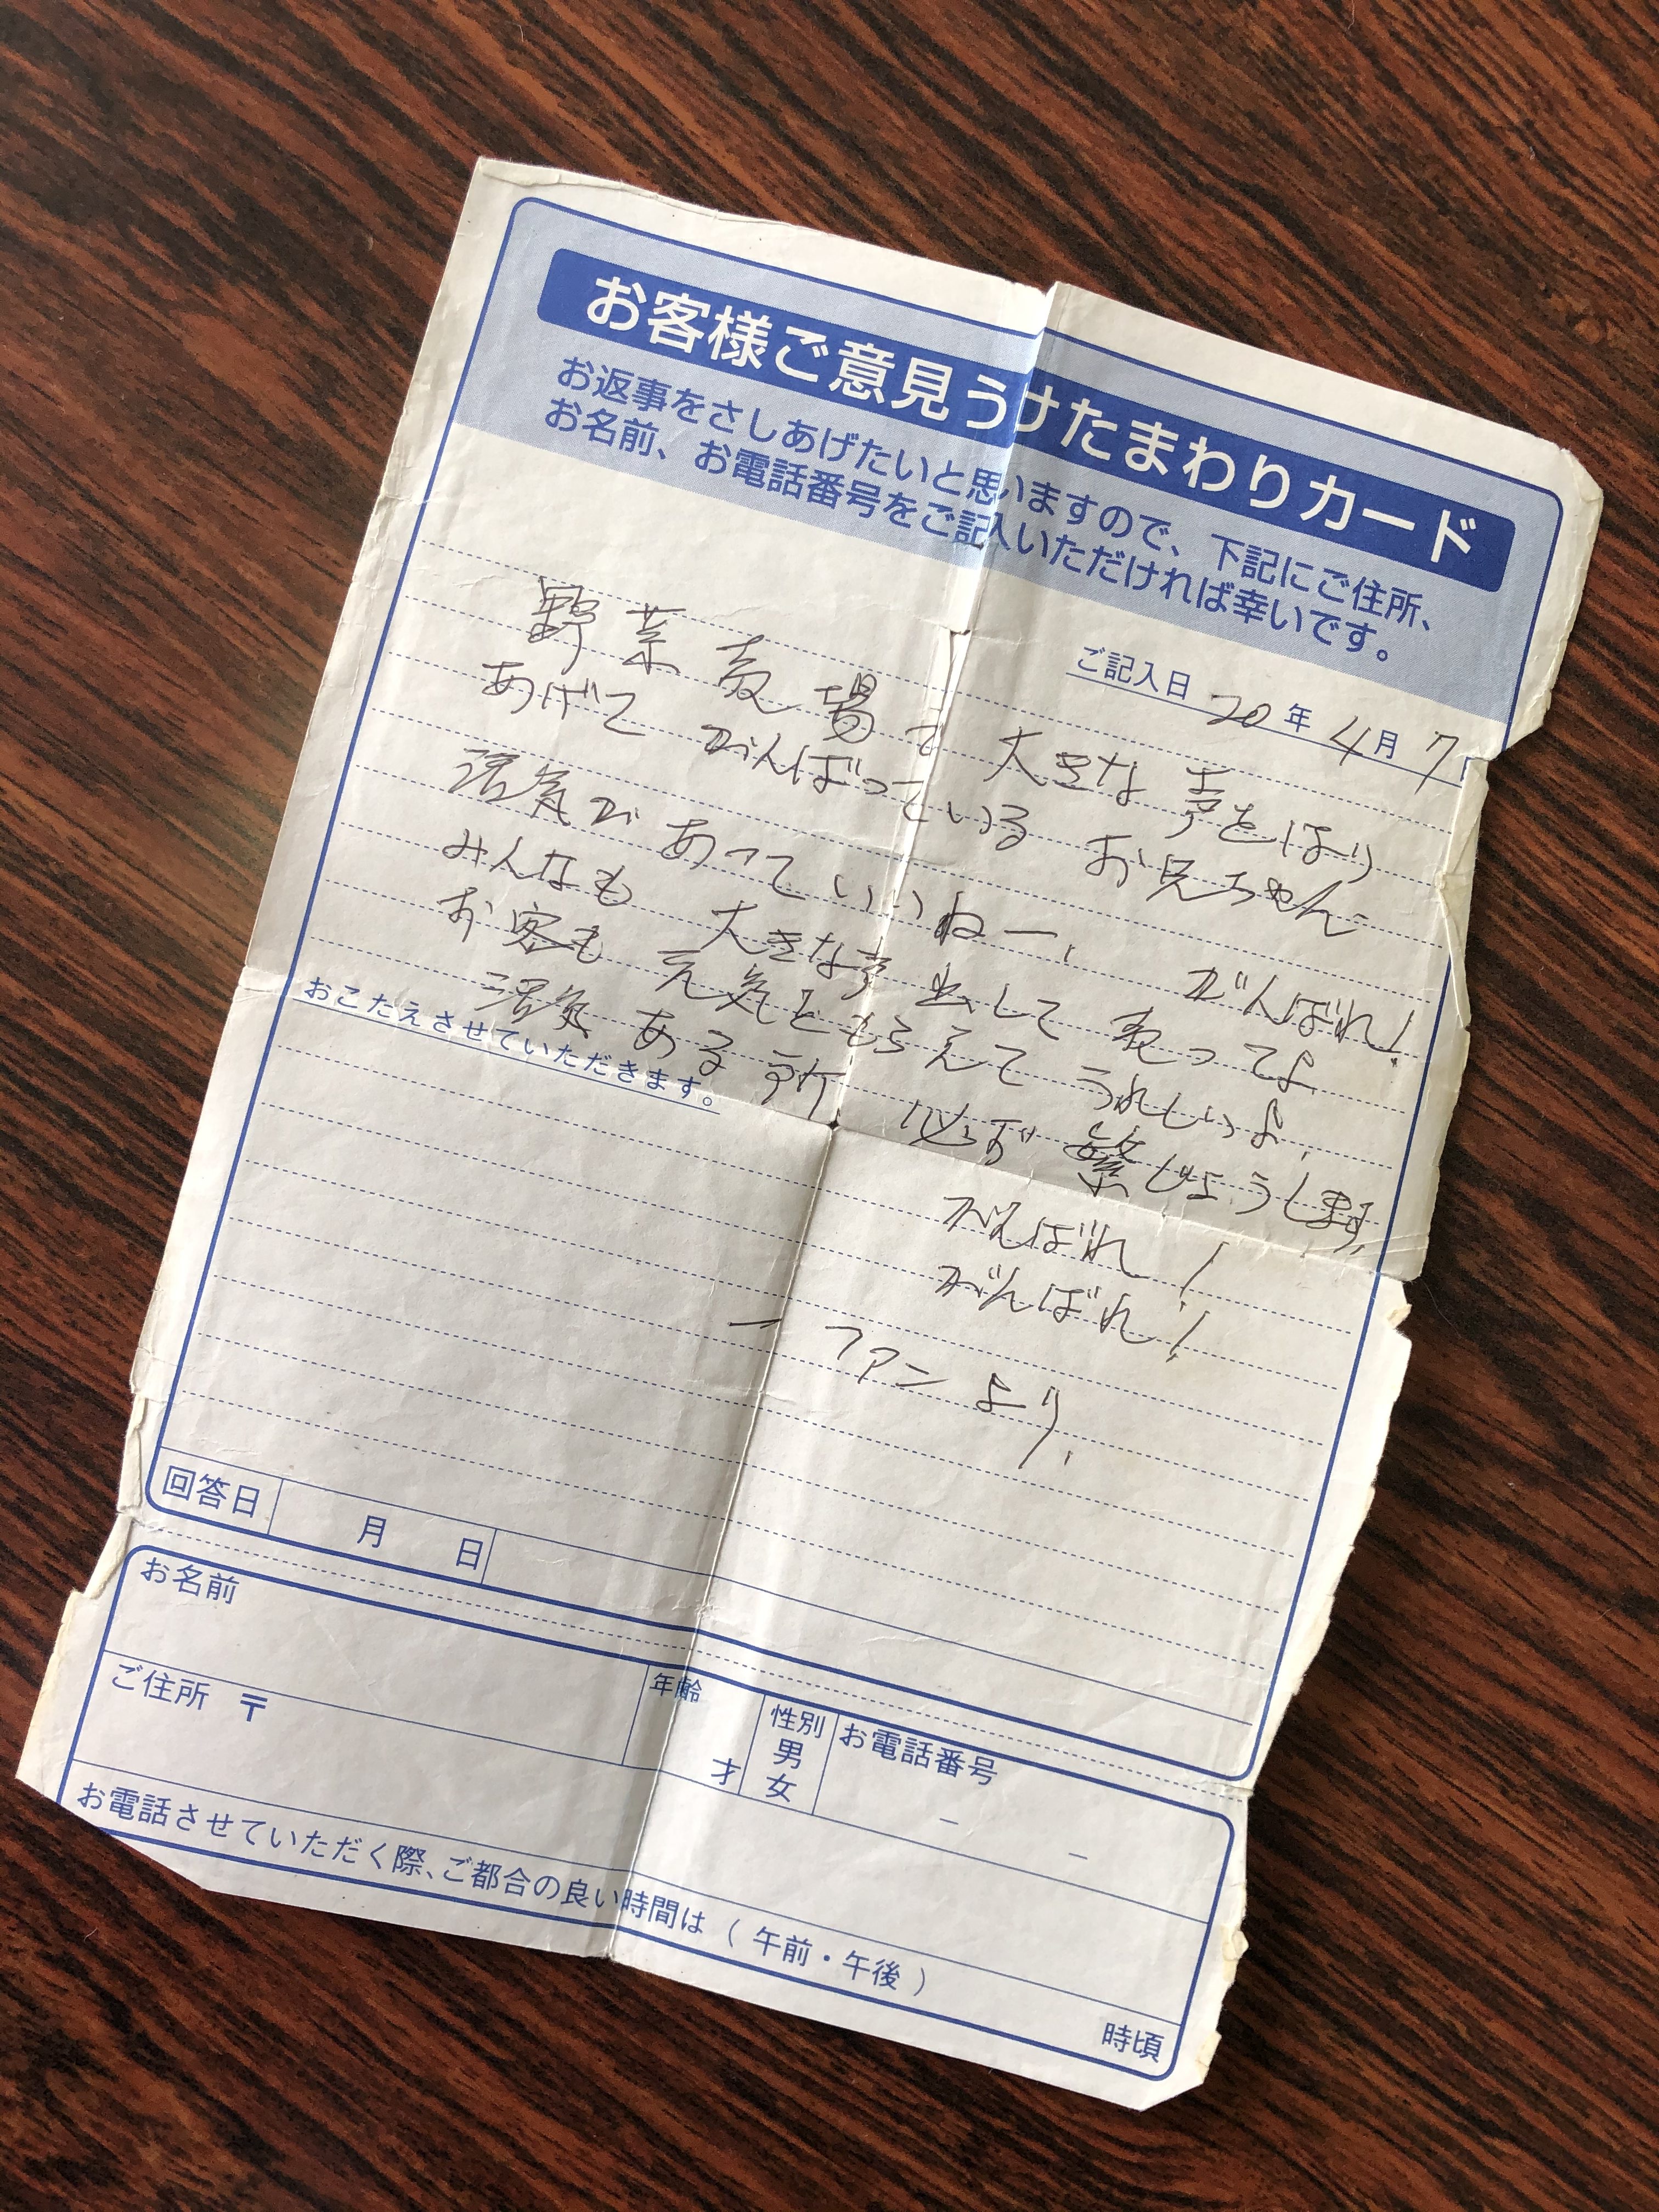 お客様ご意見うけたまわりカード
お返事をさしあげたいと思いますので、下記にご住所、
お名前、お電話番号をご記入いただければ幸いです。
ご記入日 20年4月7
野菜売場で大きな声をはり
あげてがんばっているお兄ちゃん
活気があっていいねー、がんばれ!
みんなも大きな声出して売ってよ
お客も元気をもらえてうれしいよ、
活気ある所必ず繁じょうします、
おこたえさせていただきます。
がんばれ!
がんばれ!
一ファンより、
回答日 月 日
お名前
年齢 才
性別 男 女
お電話番号 － －
ご住所 〒
お電話させていただく際、ご都合の良い時間は(午前・午後)
時頃